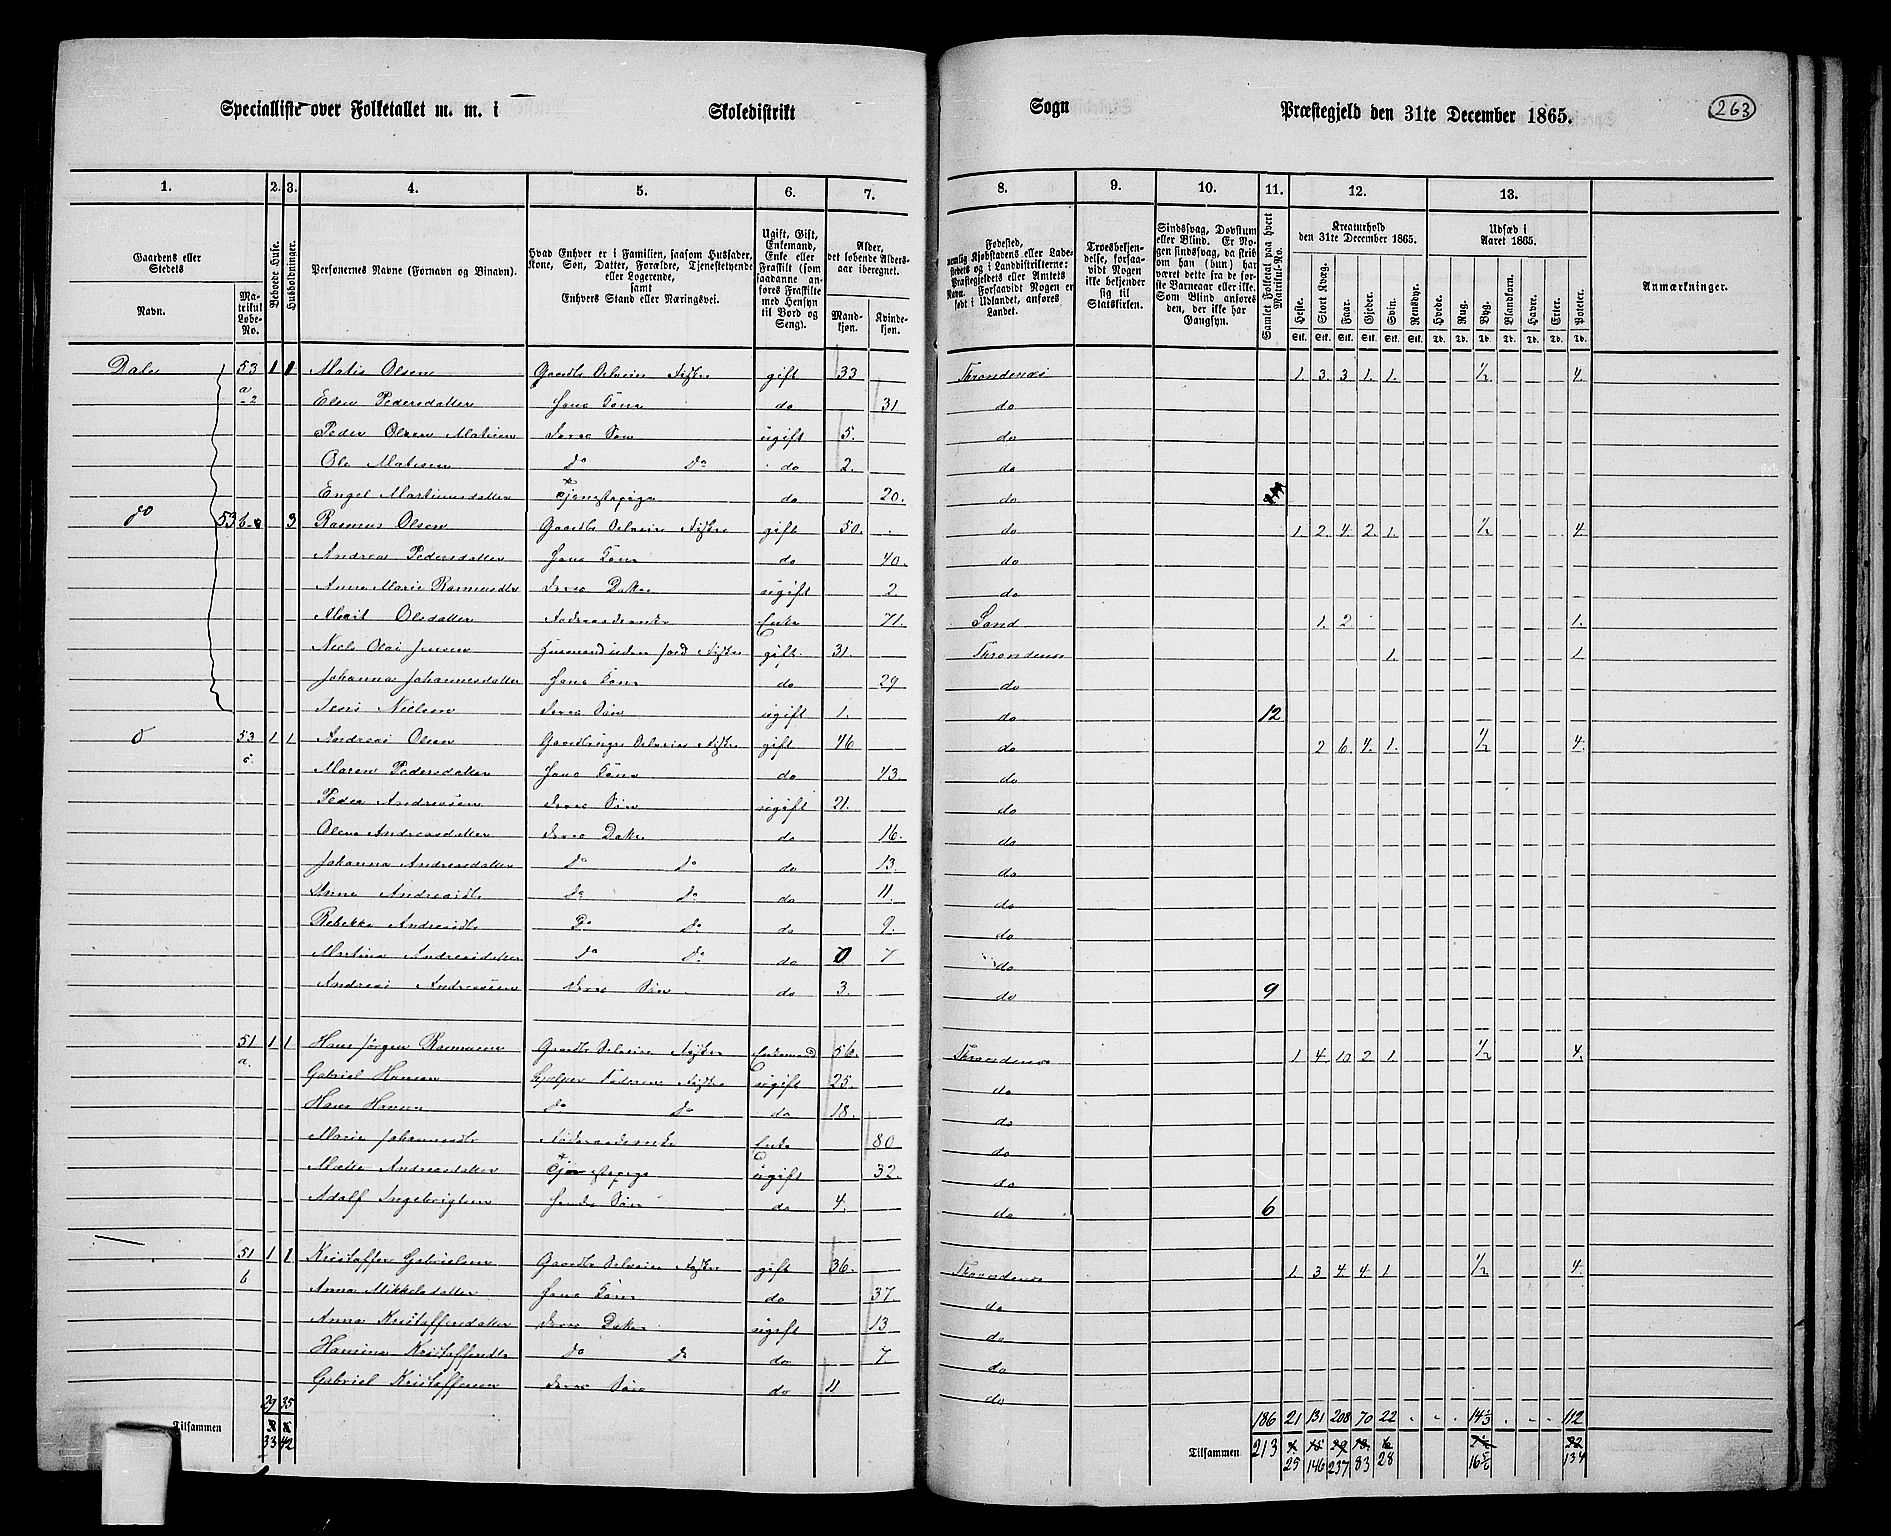 Specialliste over Folketallet m. m. i Skoledistrikt Sogn Præstegjeld den 31te December 1865. 263
1. 2. 3. 4. 5. 6. 7. 8. 9. 10. 11. 12. 13.
Gaardens eller Stedets Navn. Matrikul Løbe-No. Beboede Huse. Husholdninger. Personernes Navne (Fornavn og Binavn). Hvad Enhver er i Familien, saasom Husfader, Kone, Søn, Datter, Forældre, Tjenestetyende eller Logerende, samt Enhvers Stand eller Næringsvei. Ugift, Gift, Enkemand, Enke eller Fraskilt (som saadanne anføres Fraskilte med Hensyn til Bord og Seng). Alder, det løbende Aldersaar iberegnet. Mandkjøn. Kvindekjøn.
Fødested, nemlig Kjøbstadens eller Ladestedets og i Landdistrikterne: Præstegjeldets eller Amtets Navn. Forsaavidt Nogen er født i Udlandet, anføres Landet. Troesbekjendelse, forsaavidt Nogen ikke bekjender sig til Statskirken. Sindssvag, Døvstum eller Blind. Er Nogen sindssvag, da skrives om han (hun) har været dette fra de første Barneaar eller ikke. Som Blind anføres den, der ikke har Gangsyn. Samlet Folketal paa hvert Matrikul-No. Kreaturhold den 31te December 1865. Udsæd i Aaret 1865. Anmærkninger.
Heste. Stort Kvæg. Faar. Gjeder. Svin. Rensdyr. Hvede. Rug. Byg. Blandkorn. Havre. Erter. Poteter.
Stk. Stk. Stk. Stk. Stk. Stk. Td. Td. Td. Td. Td. Td. Td.
Dale 53 1 1 Matis Olsen Gaardb Selveier Fisker gift 33 Throndenæs 1. 3. 3 1. 1. ½ 4.
a-2 Elen Pedersdatter Hans Kone do 31 do
Peder Olsen Matisen Deres Søn ugift 5. do
Ole Matisen Do Do do 2. do
Engel Martinusdatter Tjenestepige do 20. do
do 53 b 3 Rasmus Olsen Gaardb Selveier Fisker gift 50. do 1. 2. 4. 2. 1. ½ 4.
Andrea Pedersdatter Hans Kone do 40. do
Anne Marie Rasmusdtr Deres Datter ugift 2. do
Marit Olsdatter Føderaadsenke Enke 71. Sand 1. 2 1.
Niels Olai Jensen Husmand uden Jord Fisker gift 31. Throndenæs 1. 1.
Johanna Johannesdatter Hans Kone do 29 do
Jens Nielsen Deres Søn ugift 1. do 12
53 c. 1 1 Andreas Olsen Gaardbruger Selveier Fisker gift 46 do 2 6. 4. 1. ½ 4.
Maren Pedersdatter Hans Kone do 43. do
Peder Andreasen Deres Søn ugift 21. do
Olena Andreasdatter Deres Datter do 16. do
Johanna Andreasdatter Do Do do 13. do
Anna Andreasdtr Do Do do 11. do
Rebekka Andreasdtr Do Do do 9. do
Martina Andreasdatter Do Do do 0 7 do
Andreas Andreasen Deres Søn do 3. do 9
51 a. 1 1 Hans Jørgen Rasmussen Gaardb Selveier Fisker Enkemand 56. Throndenæs 1 4. 10 2 1. ½ 4.
Gabriel Hansen Hjælper Faderen Fisker ugift 25. do
Hans Hansen Do Do do 18. do
Marie Johannesdtr Føderaadsenke Enke 80 do
Mette Andreasdatter Tjenestepige ugift 32. do
Adolf Ingebrigtsen Hendes Søn do 4. do 6
51 b 1 1 Kristoffer Gabrielsen Gaardb Selveier Fisker gift 36. Throndenæs 1 3 4. 4. 1 ½ 4.
Anna Mikkelsdatter Hans Kone do 37. do
Anna Kristoffersdatter Deres Datter ugift 13 do
Hansina Kristoffersdtr Do Do do 7. do
Gabriel Kristoffersen Deres Søn do 11 do
29 35 186 21 131 208 70 22 14⅓ 112
Tilsammen 33 42 Tilsammen 213 25 146 237 83 28 16⅚ 134